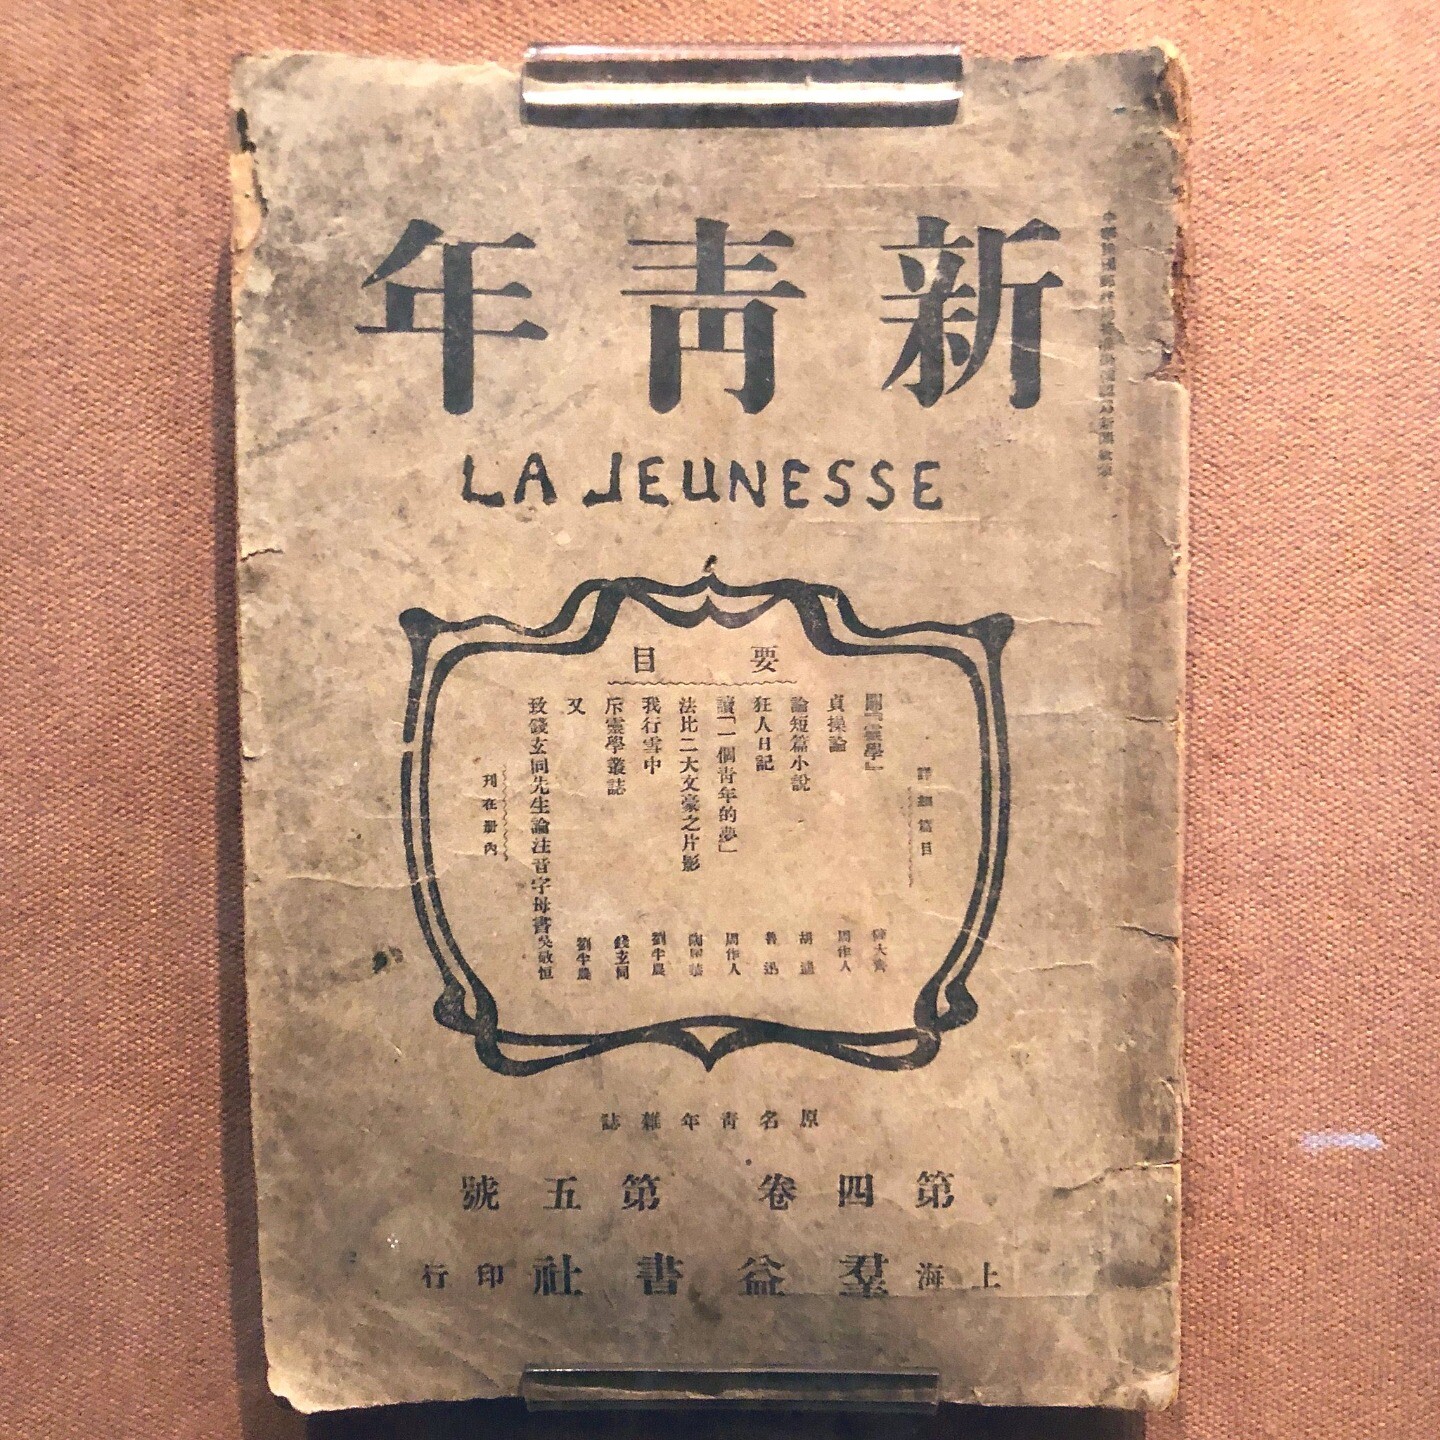 新青年
LA JEUNESSE
要目
詳細篇目
闢『靈學』 陳大齊
貞操論 周作人
論短篇小說 胡適
狂人日記 魯迅
讀「一個青年的夢」 周作人
法比二大文豪之片影 陶履恭
我行雪中 劉半農
斥靈學叢誌 錢玄同
又 劉半農
致錢玄同先生論注音字母書 吳敬恒
刊在册內
原名青年雜誌
第四卷第五號
上海羣益書社印行